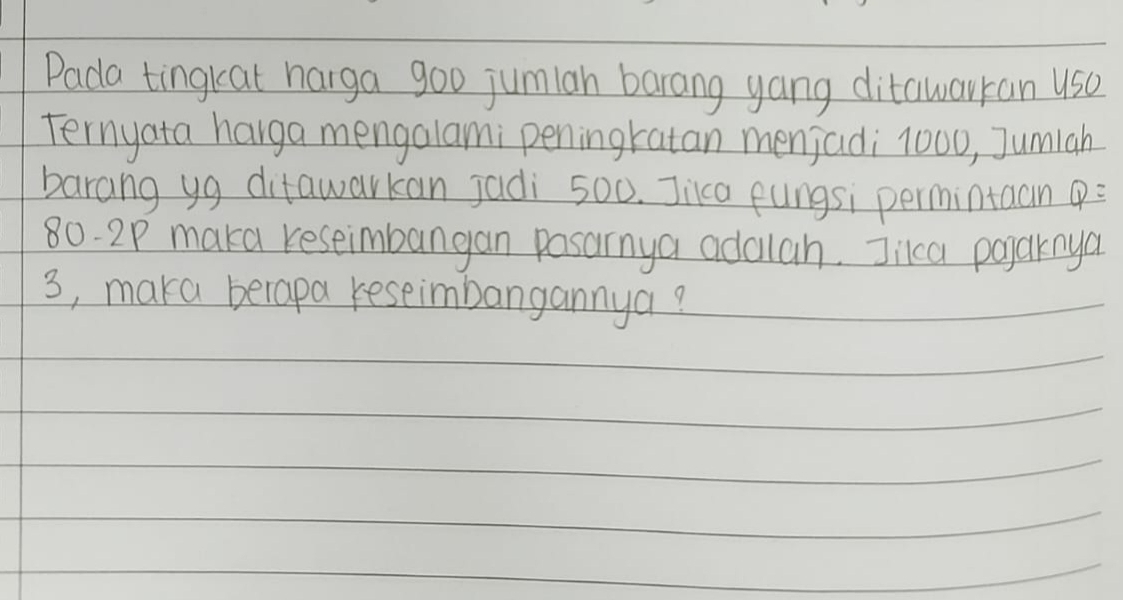 Pada tingkat harga 900 jumlah barang yang ditawarkan 450
Ternyata harga mengalami peningkatan menjadi 1000, Jumlah
barang yg ditawarkan jadi 500. Jika fungsi permintaan Q=
80-2P maka keseimbangan pasarnya adalah. Jika pajaknya
3, maka berapa keseimbangannya?